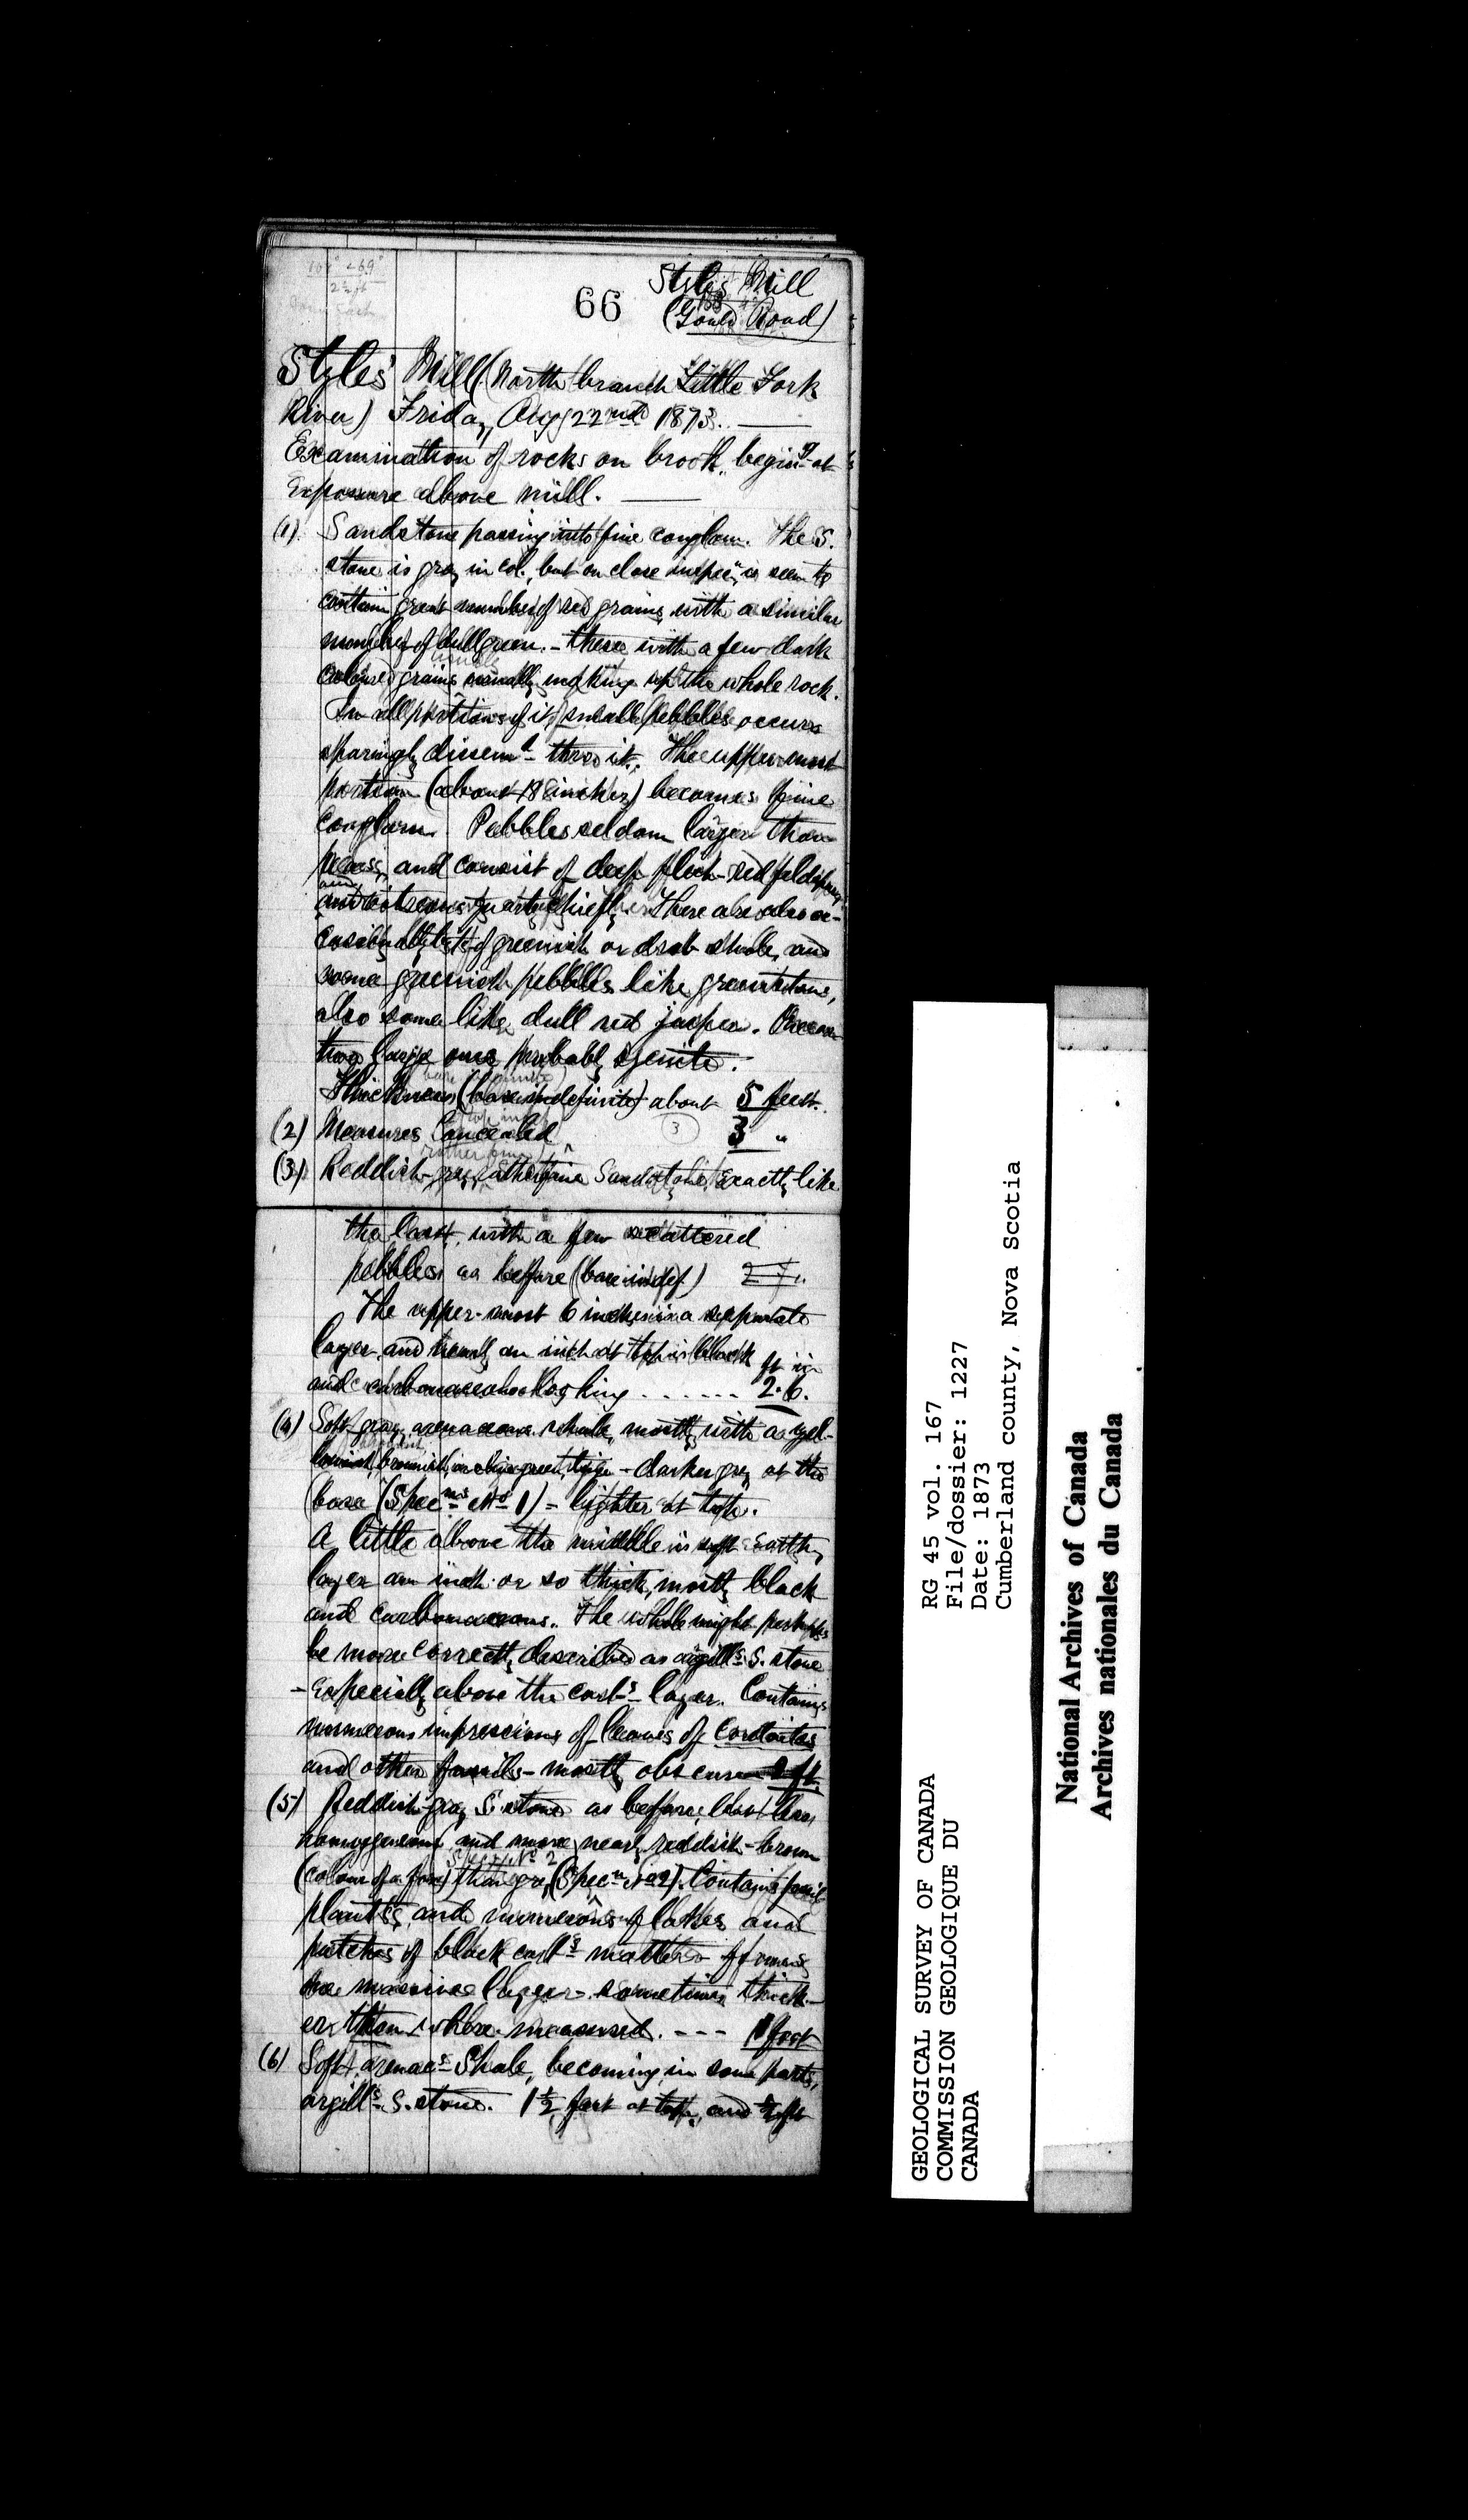 Styles Mill
66
(Gould Road)
Styles' Mill (North branch Little Fork
River) Friday, Aug 22nd 1873. —
Examination of rocks on brook, begin.g at
Exposure above mill. —
(1) Sandstone passing into fine conglom. The S.
stone is gray in col., but on close inspec.n is seen to
contain great number of red grains, with a similar
number of dull green. - these with a few dark
coloured grains making up the whole rock.
In all portions of it small pebbles occur
sparingly dissem.d thro it. The upper-most
portion (about 18 inches) becomes fine
Conglom. Pebbles seldom larger than
peas, and consist of deep flesh-red feldspar
quartz chiefly. There are also oc-
casionally bits of greenish or drab shale, and
some greenish pebbles like greenstone,
also some like dull red jasper.
two large ones probably syenite.
Thickness (base indefinite) about 5 feet.
(2) Measures Concealed 3 "
(3) Reddish-gray rather fine Sandstone, exactly like
the last, with a few scattered
pebbles as before (base indef.)
The upper-most 6 inches is a separate
layer and nearly an inch at top is black ft in
and carbonaceous looking . . . . . . 2.6.
(4) Soft gray arenaceous shale, mostly with a yel-
lowish, brownish, or olive green tinge - darker gray at the
base (Spec.ns No 1) - lighter at top.
A little above the middle is soft earthy
layer an inch or so thick, mostly black
and carbonaceous. The whole might perhaps
be more correctly described as argill.s S. stone
- Especially above the carb.s layer. Contains
numerous impressions of leaves of Cordaites
and other fossils - mostly obscure 2 ft.
(5) Reddish-gray S. stone as before, but less
homogeneous and more nearly reddish-brown
(colour of a fox) than gray (Spec.n No 2). Contains fossil
plants, and numerous flakes and
patches of black carb.s matter - forms
one massive layer - sometimes thick-
er than where measured. - - - 1 foot
(6) Soft arenac.s Shale, becoming in some parts,
argill.s S. stone. 1½ feet at top, and
GEOLOGICAL SURVEY OF CANADA
COMMISSION GEOLOGIQUE DU
CANADA
RG 45 vol. 167
File/dossier: 1227
Date: 1873
Cumberland county, Nova Scotia
National Archives of Canada
Archives nationales du Canada